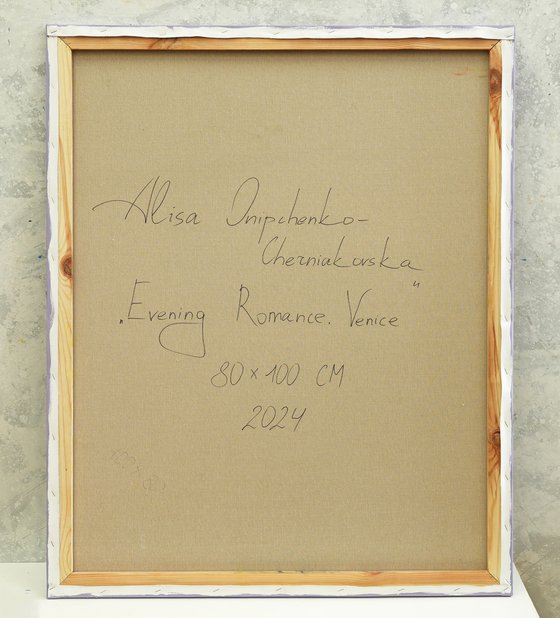 Alisa Onipchenko-
Cherniakovska
„Evening Romance. Venice“
80 x 100 CM
2024